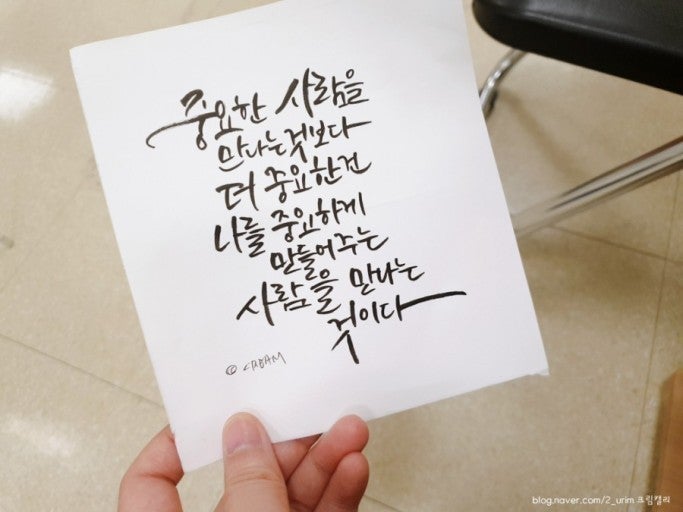 중요한 사람을
만나는것보다
더 중요한건
나를 중요하게
만들어주는
사람을 만나는
것이다
© CREAM
blog.naver.com/2_urim 크림캘리